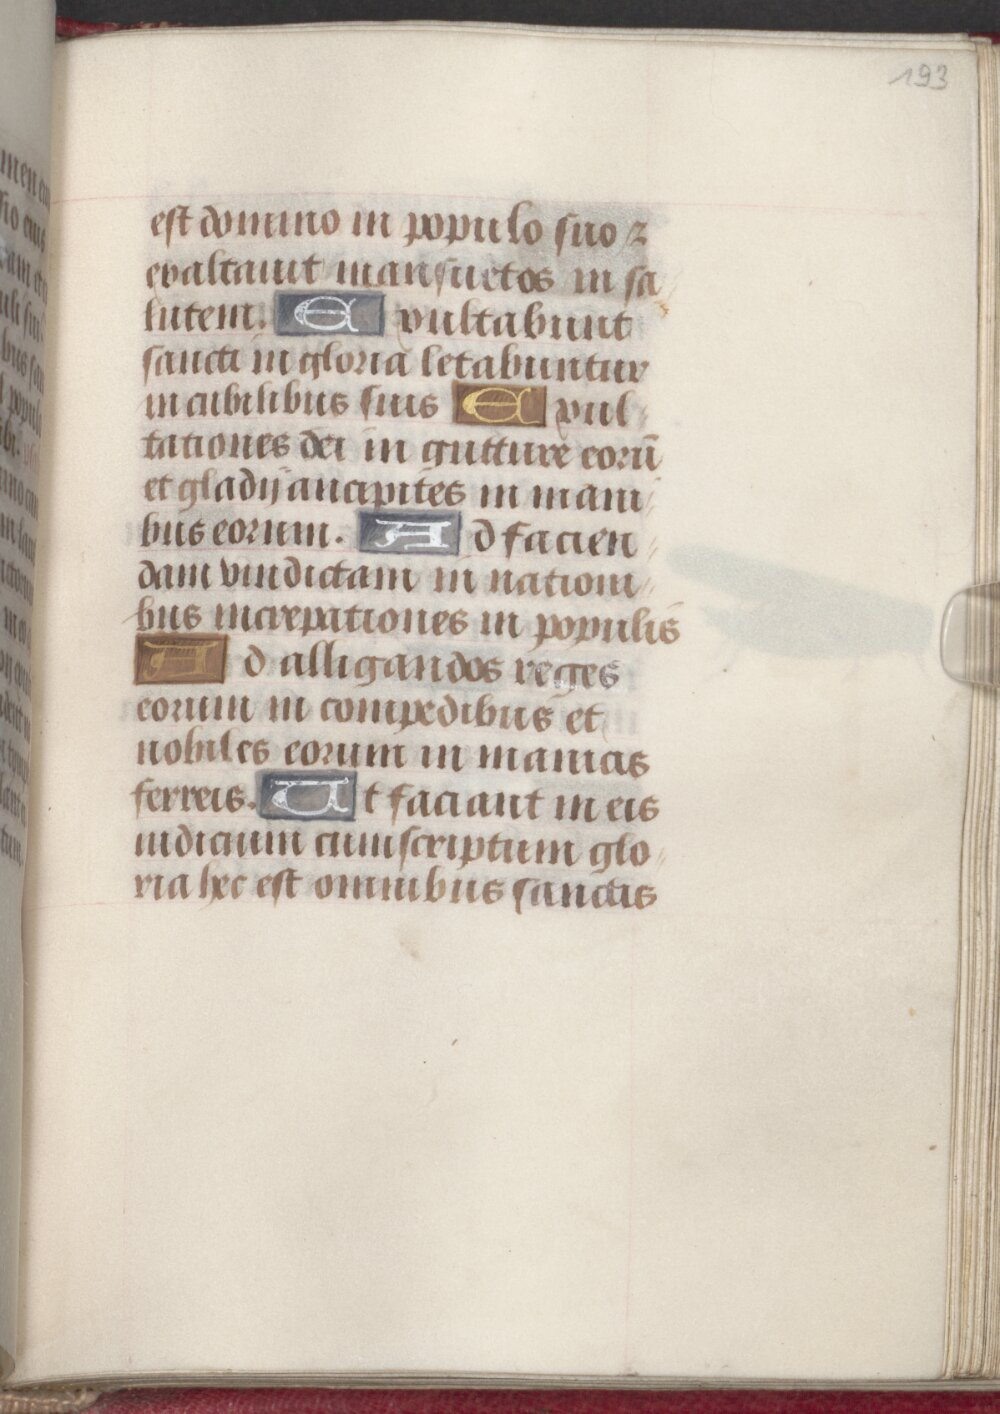 193
est domino in populo suo ⁊
exaltauit mansuetos in sa
lutem. Exultabunt
sancti in gloria letabuntur
in cubilibus suis Exul
tationes dei in gutture eorū
et gladij ancipites in mani
bus eorum. Ad facien
dam vindictam in nationi
bus increpationes in populis
Ad alligandos reges
eorum in compedibus et
nobiles eorum in manicis
ferreis. Ut faciant in eis
iudicium cumscriptum glo
ria hec est omnibus sanctis